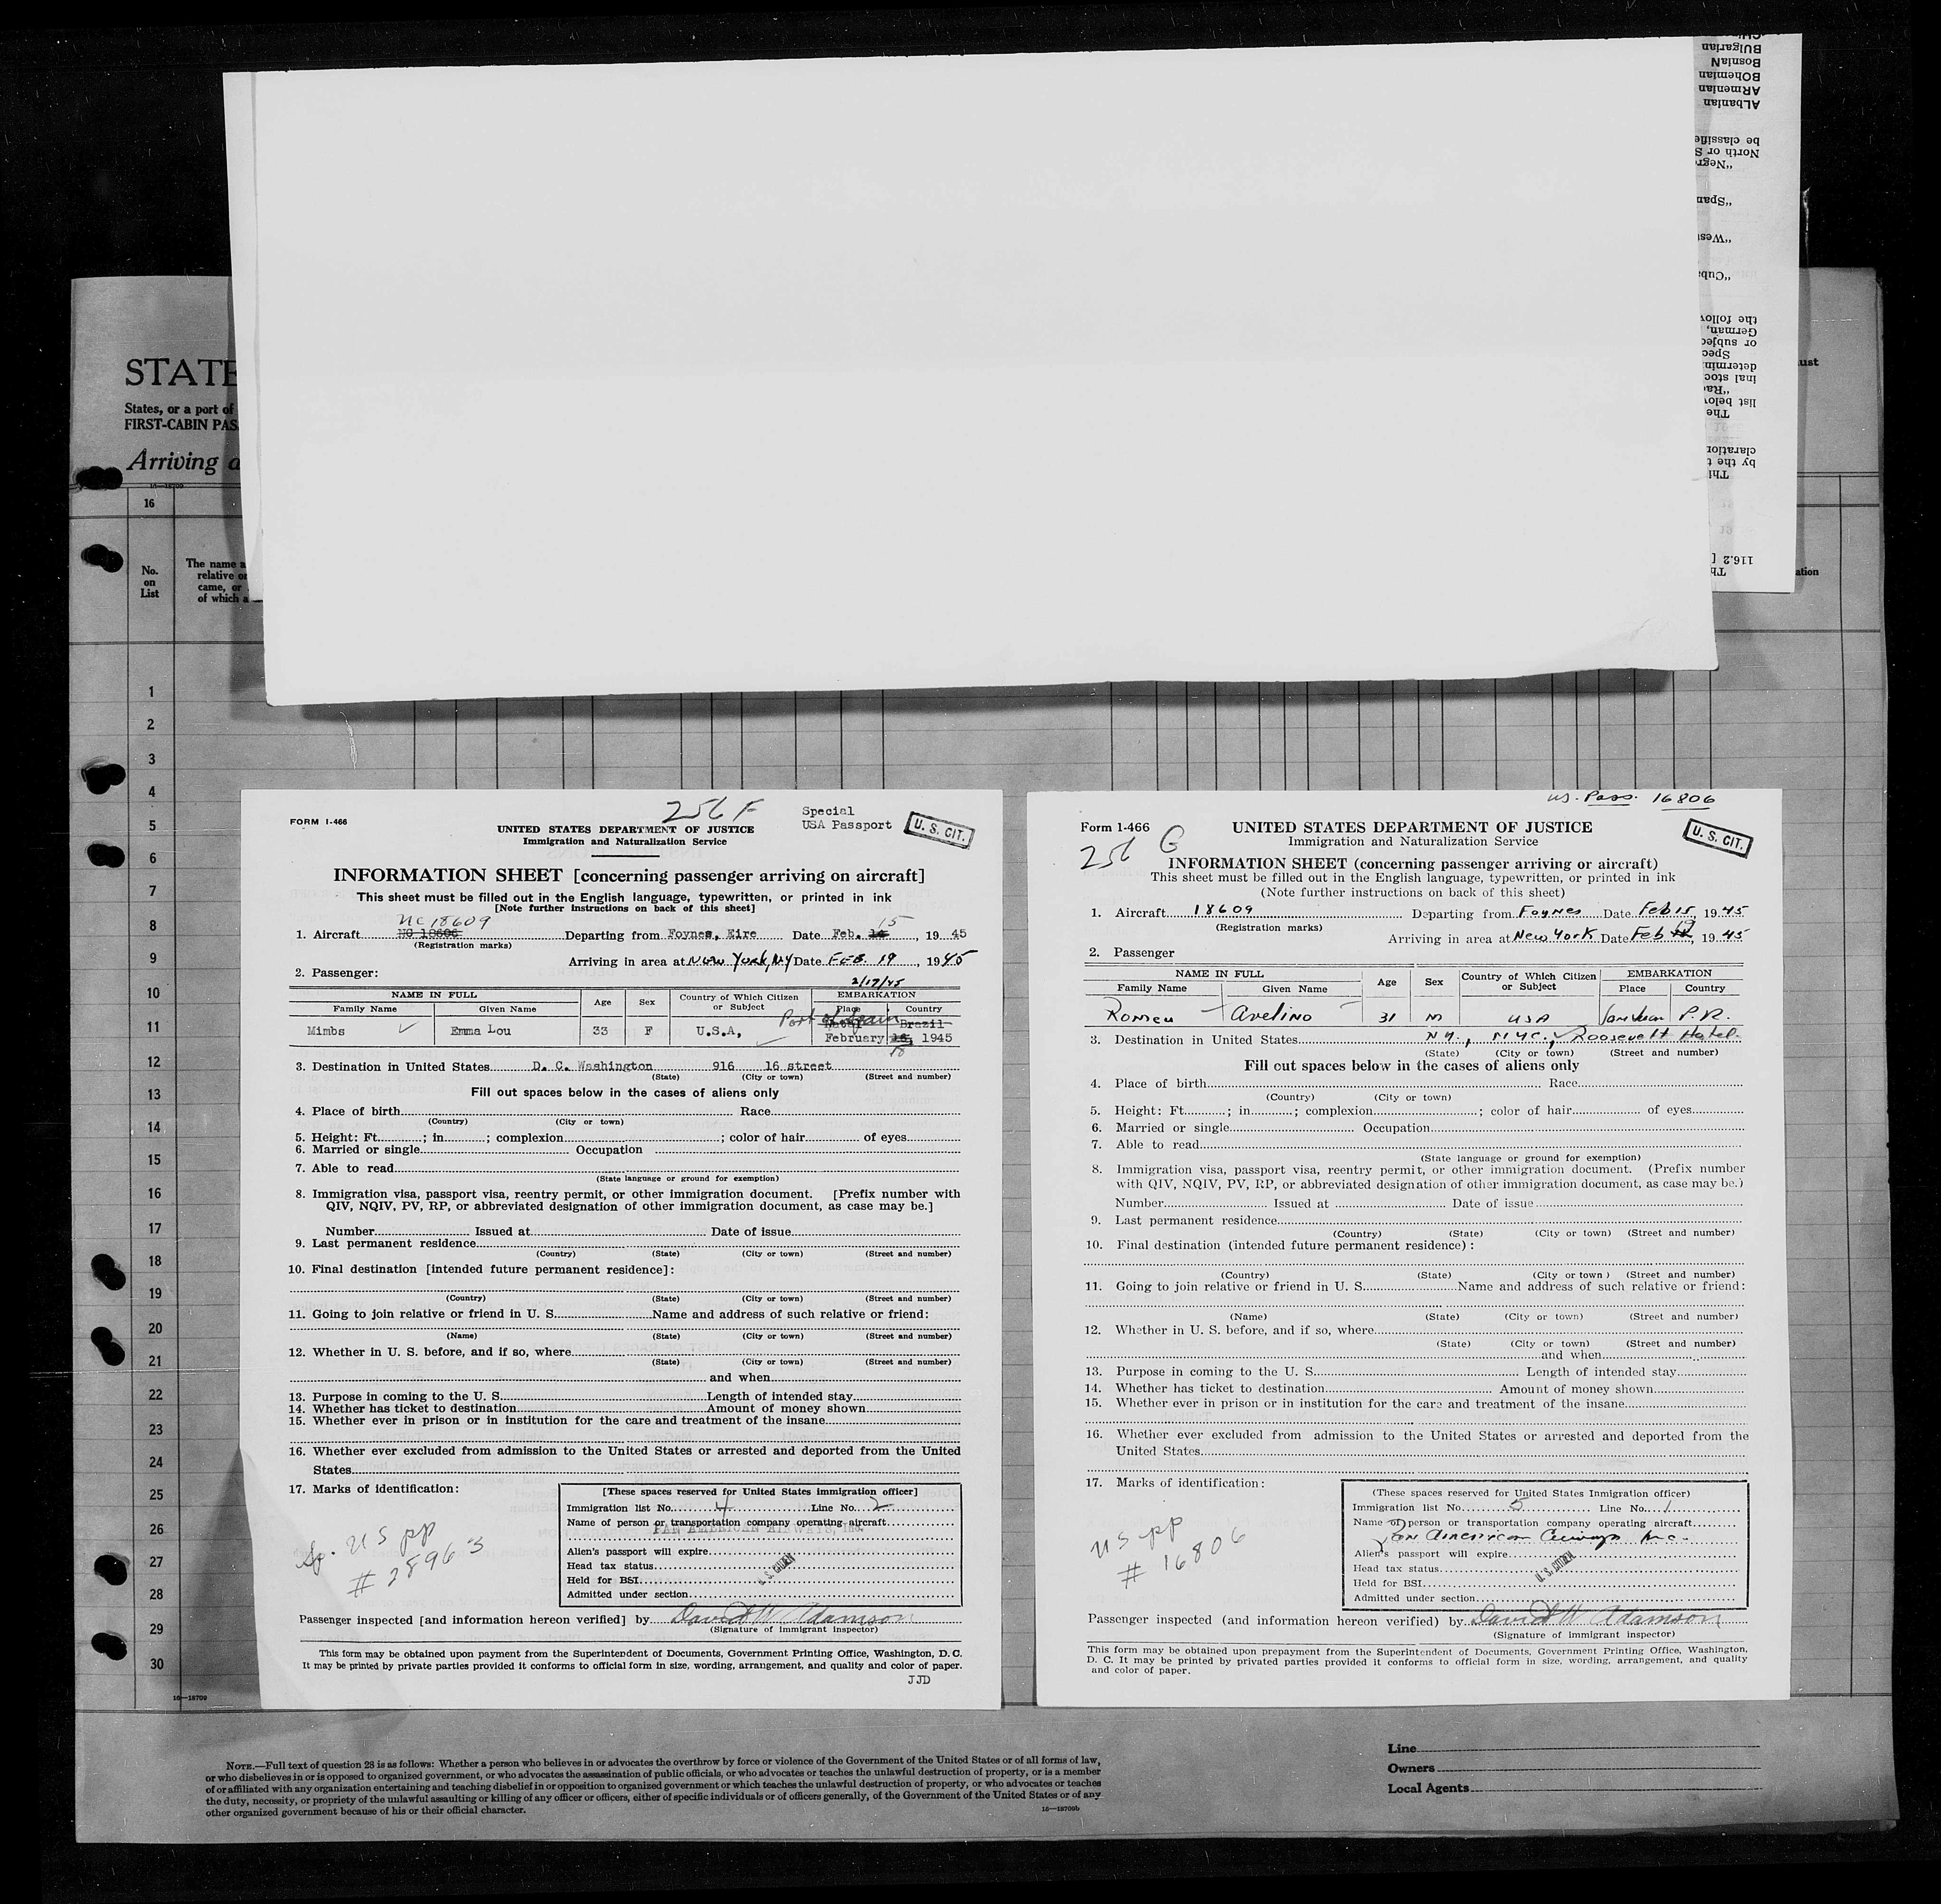 STATE
States, or a port of
FIRST-CABIN PAS
Arriving a
16—18709
16
No.
on
List
The name a
relative or
came, or
of which a
1
2
3
4
5
6
7
8
9
10
11
12
13
14
15
16
17
18
19
20
21
22
23
24
25
26
27
28
29
30
16—18709
BULgarian
BOsnIaN
BOhemian
ARmenian
ALbanian
be classifie
North or S
"Negr
"Span
"West
"Cuba
the follow
German,
or subjec
Spec
determin
inal stoc
"Rac
list below
The
claration
by the t
Thi
116.2 [
Th
ust
ation
256 F
Special
USA Passport
U. S. CIT.
FORM I-466
UNITED STATES DEPARTMENT OF JUSTICE
Immigration and Naturalization Service
INFORMATION SHEET [concerning passenger arriving on aircraft]
This sheet must be filled out in the English language, typewritten, or printed in ink
[Note further instructions on back of this sheet]
NC 18609 15
1. Aircraft NC 18606 Departing from Foynes, Eire Date Feb. 14, 19 45
(Registration marks)
Arriving in area at New York, NY Date FEB. 19, 19 45
2. Passenger:
2/17/45
NAME IN FULL Age Sex Country of Which Citizen or Subject EMBARKATION
Family Name Given Name Place Country
Port of Spain
Mimbs Emma Lou 33 F U.S.A, Natal Brazil
February 16, 1945
18
3. Destination in United States D. C. Washington 916 16 street
(State) (City or town) (Street and number)
Fill out spaces below in the cases of aliens only
4. Place of birth Race
(Country) (City or town)
5. Height: Ft. ; in ; complexion ; color of hair of eyes
6. Married or single Occupation
7. Able to read
(State language or ground for exemption)
8. Immigration visa, passport visa, reentry permit, or other immigration document. [Prefix number with
QIV, NQIV, PV, RP, or abbreviated designation of other immigration document, as case may be.]
Number Issued at Date of issue
9. Last permanent residence
(Country) (State) (City or town) (Street and number)
10. Final destination [intended future permanent residence]:
(Country) (State) (City or town) (Street and number)
11. Going to join relative or friend in U. S. Name and address of such relative or friend:
(Name) (State) (City or town) (Street and number)
12. Whether in U. S. before, and if so, where
(State) (City or town) (Street and number)
and when
13. Purpose in coming to the U. S. Length of intended stay
14. Whether has ticket to destination Amount of money shown
15. Whether ever in prison or in institution for the care and treatment of the insane
16. Whether ever excluded from admission to the United States or arrested and deported from the United
States
17. Marks of identification:
Sp. US pp
# 28963
[These spaces reserved for United States immigration officer]
Immigration list No. 4 Line No. 2
Name of person or transportation company operating aircraft
PAN AMERICAN AIRWAYS, Inc.
Alien's passport will expire
Head tax status
U. S. CITIZEN
Held for BSI
Admitted under section
Passenger inspected [and information hereon verified] by David W Adamson
(Signature of immigrant inspector)
This form may be obtained upon payment from the Superintendent of Documents, Government Printing Office, Washington, D. C.
It may be printed by private parties provided it conforms to official form in size, wording, arrangement, and quality and color of paper.
JJD
US. Pass. 16806
U. S. CIT.
Form 1-466
256 G
UNITED STATES DEPARTMENT OF JUSTICE
Immigration and Naturalization Service
INFORMATION SHEET (concerning passenger arriving or aircraft)
This sheet must be filled out in the English language, typewritten, or printed in ink
(Note further instructions on back of this sheet)
1. Aircraft 18609 Departing from Foynes Date Feb 15, 19 45
(Registration marks)
Arriving in area at New York Date Feb 19, 19 45
2. Passenger
NAME IN FULL Age Sex Country of Which Citizen or Subject EMBARKATION
Family Name Given Name Place Country
Romeu Avelino 31 M USA San Juan P.R.
3. Destination in United States NY., NYC., Roosevelt Hotel
(State) (City or town) (Street and number)
Fill cut spaces below in the cases of aliens only
4. Place of birth Race
(Country) (City or town)
5. Height: Ft. ; in. ; complexion ; color of hair of eyes
6. Married or single Occupation
7. Able to read
(State language or ground for exemption)
8. Immigration visa, passport visa, reentry permit, or other immigration document. (Prefix number
with QIV, NQIV, PV, RP, or abbreviated designation of other immigration document, as case may be.)
Number Issued at Date of issue
9. Last permanent residence
(Country) (State) (City or town) (Street and number)
10. Final destination (intended future permanent residence):
(Country) (State) (City or town) (Street and number)
11. Going to join relative or friend in U. S. Name and address of such relative or friend:
(Name) (State) (City or town) (Street and number)
12. Whether in U. S. before, and if so, where
(State) (City or town) (Street and number)
and when
13. Purpose in coming to the U. S. Length of intended stay
14. Whether has ticket to destination Amount of money shown
15. Whether ever in prison or in institution for the care and treatment of the insane
16. Whether ever excluded from admission to the United States or arrested and deported from the
United States
17. Marks of identification:
US pp
# 16806
(These spaces reserved for United States Inmigration officer)
Immigration list No. 5 Line No. 1
Name of person or transportation company operating aircraft
Pan American Airways Inc.
Alien's passport will expire
Head tax status
U. S. CITIZEN
Held for BSI
Admitted under section
Passenger inspected (and information hereon verified) by David W Adamson
(Signature of immigrant inspector)
This form may be obtained upon prepayment from the Superintendent of Documents, Government Printing Office, Washington,
D. C. It may be printed by privated parties provided it conforms to official form in size, wording, arrangement, and quality
and color of paper.
NOTE.—Full text of question 28 is as follows: Whether a person who believes in or advocates the overthrow by force or violence of the Government of the United States or of all forms of law,
or who disbelieves in or is opposed to organized government, or who advocates the assassination of public officials, or who advocates or teaches the unlawful destruction of property, or is a member
of or affiliated with any organization entertaining and teaching disbelief in or opposition to organized government or which teaches the unlawful destruction of property, or who advocates or teaches
the duty, necessity, or propriety of the unlawful assaulting or killing of any officer or officers, either of specific individuals or of officers generally, of the Government of the United States or of any
other organized government because of his or their official character.
16—18709b
Line
Owners
Local Agents